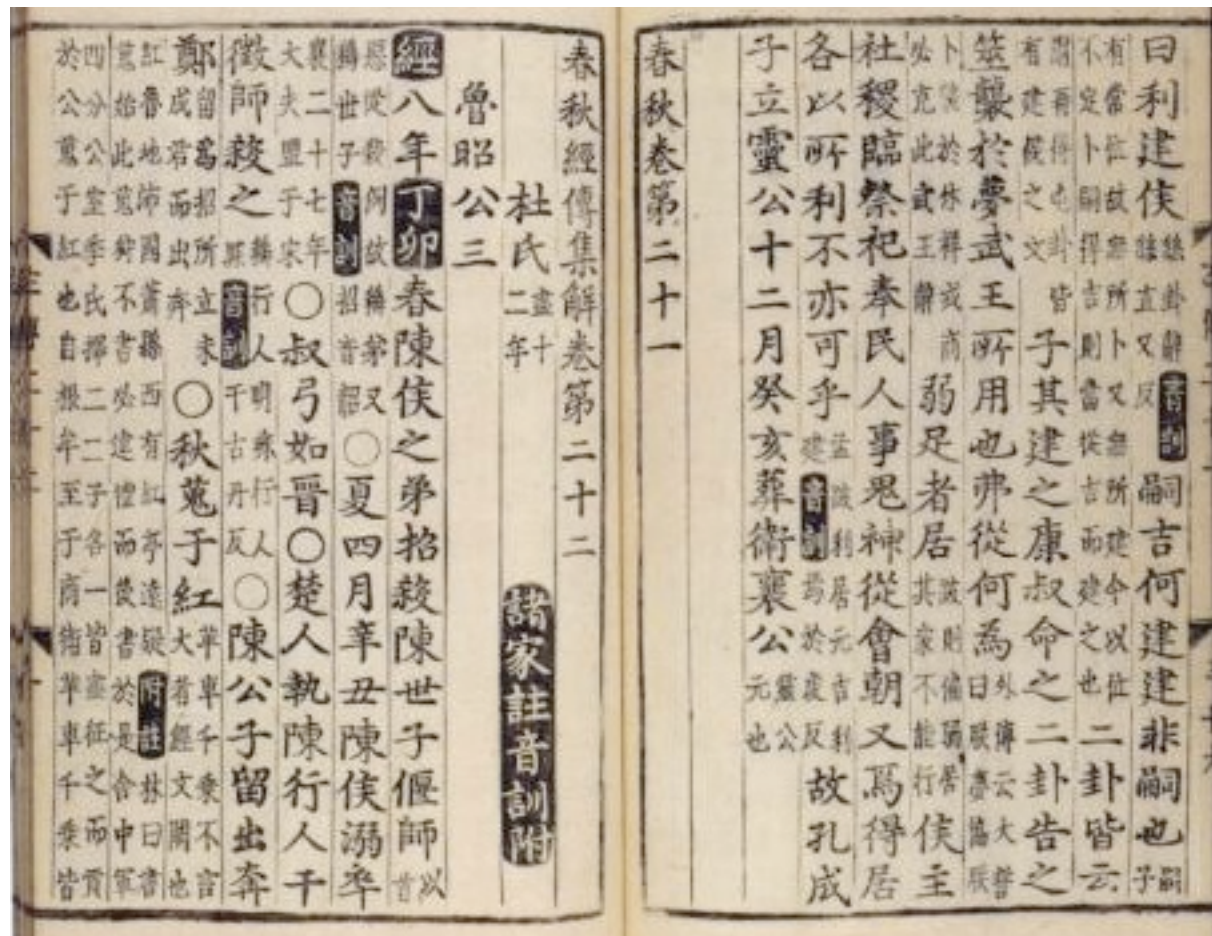 曰利建侯繇卦辭音訓繇直又反嗣吉何建建非嗣也嗣子
有常位故無所卜又無所建今以位不定卜嗣得吉則當從吉而建之也二卦皆云
謂再得屯卦皆有建侯之文子其建之康叔命之二卦告之
筮襲於夢武王所用也弗從何為外傳云大誓曰朕夢協朕
卜襲於休祥戎商必克此武王辭弱足者居跛則偏弱居其家不能行侯主
社稷臨祭祀奉民人事鬼神從會朝又焉得居
各以所利不亦可乎孟跛利居元吉利建音訓焉於虔反故孔成
子立靈公十二月癸亥葬衛襄公靈公元也
春秋卷第二十一
春秋經傳集解卷第二十二
杜氏盡十二年諸家註音訓附
魯昭公三
經八年丁卯春陳侯之弟招殺陳世子偃師以首
惡從殺例故稱弟又稱世子音訓招音韶○夏四月辛丑陳侯溺卒
襄二十七年大夫盟于宋○叔弓如晉○楚人執陳行人干
徵師殺之稱行人明非行人罪音訓干古丹反○陳公子留出奔
鄭留為招所立未成君而出奔○秋蒐于紅革車千乘不言大者經文闕也
紅魯地沛國蕭縣西有紅亭遠疑附註林曰書蒐始此蒐狩不書必違禮而後書於是舍中軍
四分公室季氏擇二二子各一皆盡征之而貢於公蒐于紅也自根牟至于商衛革車千乘皆